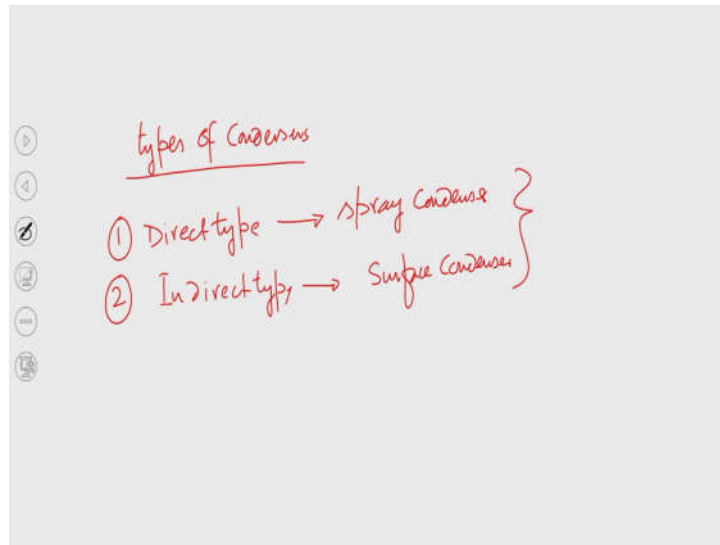 types of Condensers
① Direct type → spray Condenser
② Indirect type → Surface Condenser